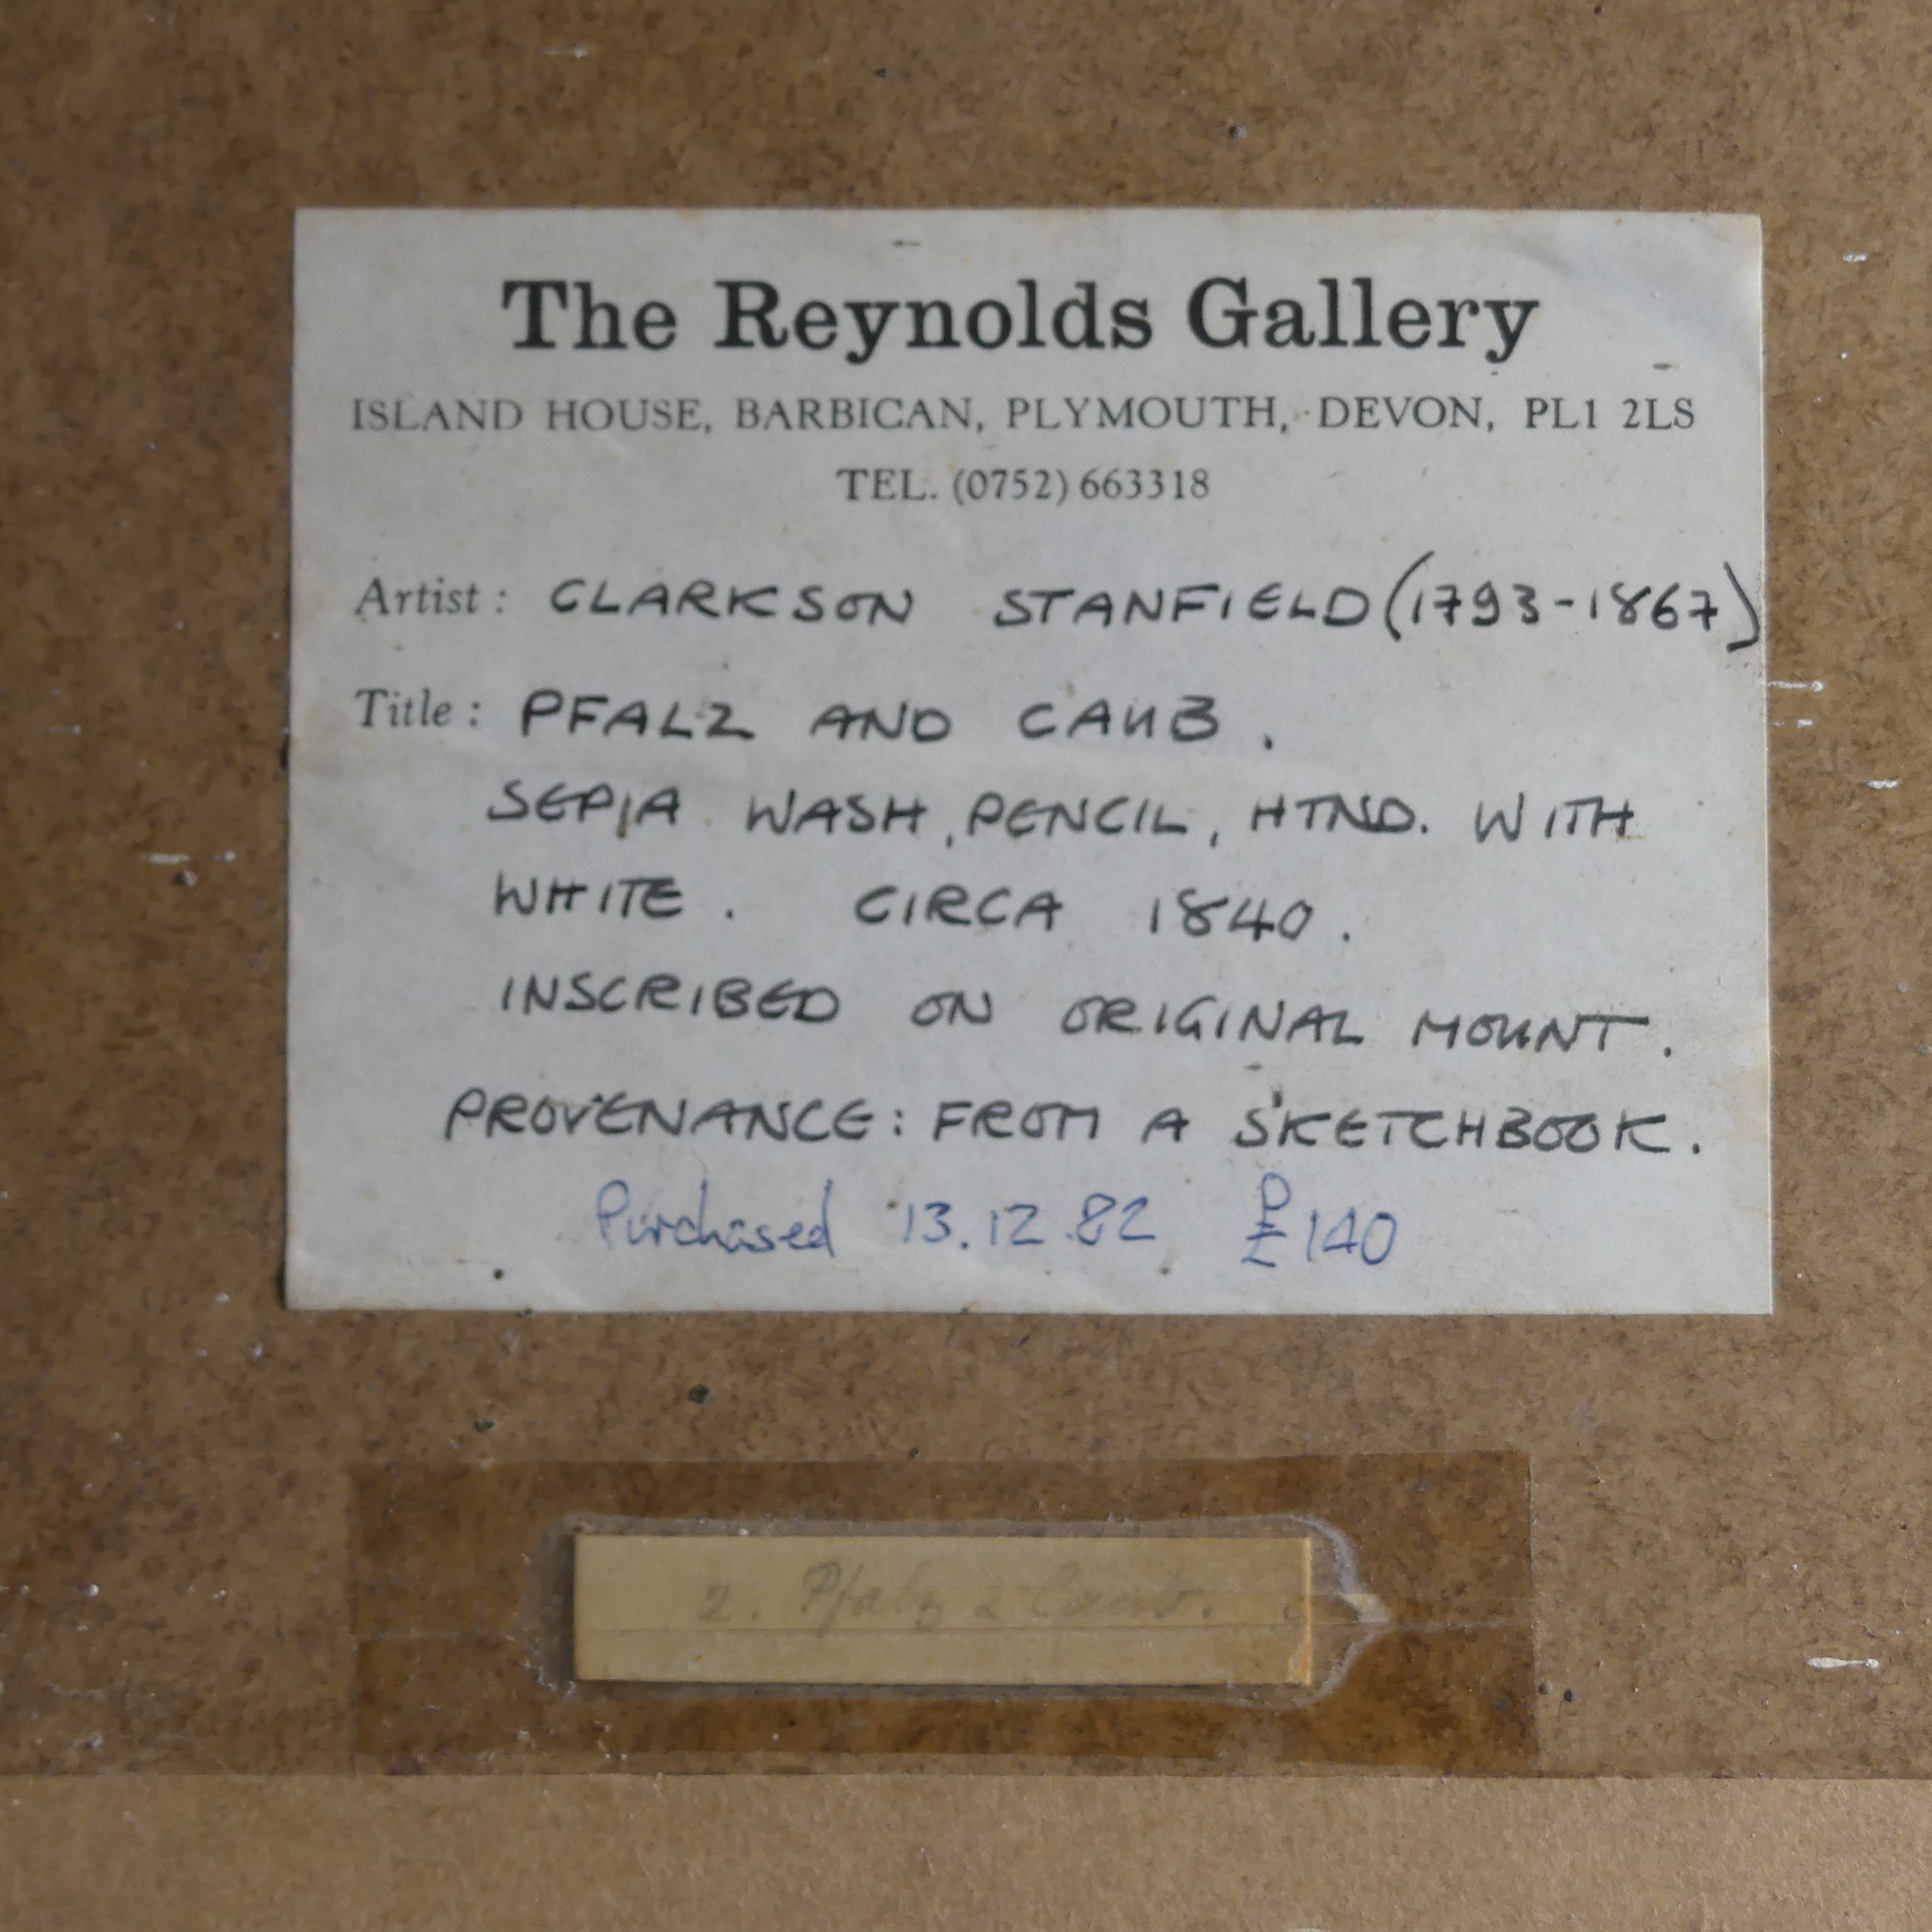 The Reynolds Gallery
ISLAND HOUSE, BARBICAN, PLYMOUTH, DEVON, PL1 2LS
TEL. (0752) 663318
Artist: CLARKSON STANFIELD (1793-1867)
Title: PFALZ AND CAUB.
SEPIA WASH, PENCIL, HTND. WITH
WHITE. CIRCA 1840.
INSCRIBED ON ORIGINAL MOUNT.
PROVENANCE: FROM A SKETCHBOOK.
Purchased 13.12.82 £140
2. Pfalz & Caub.